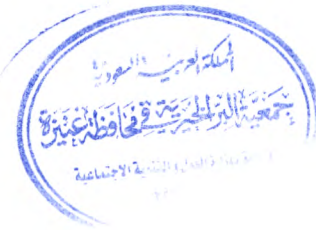 المملكة العربية السعودية
جمعية البر الخيرية في محافظة عنيزة
والتنمية الاجتماعية